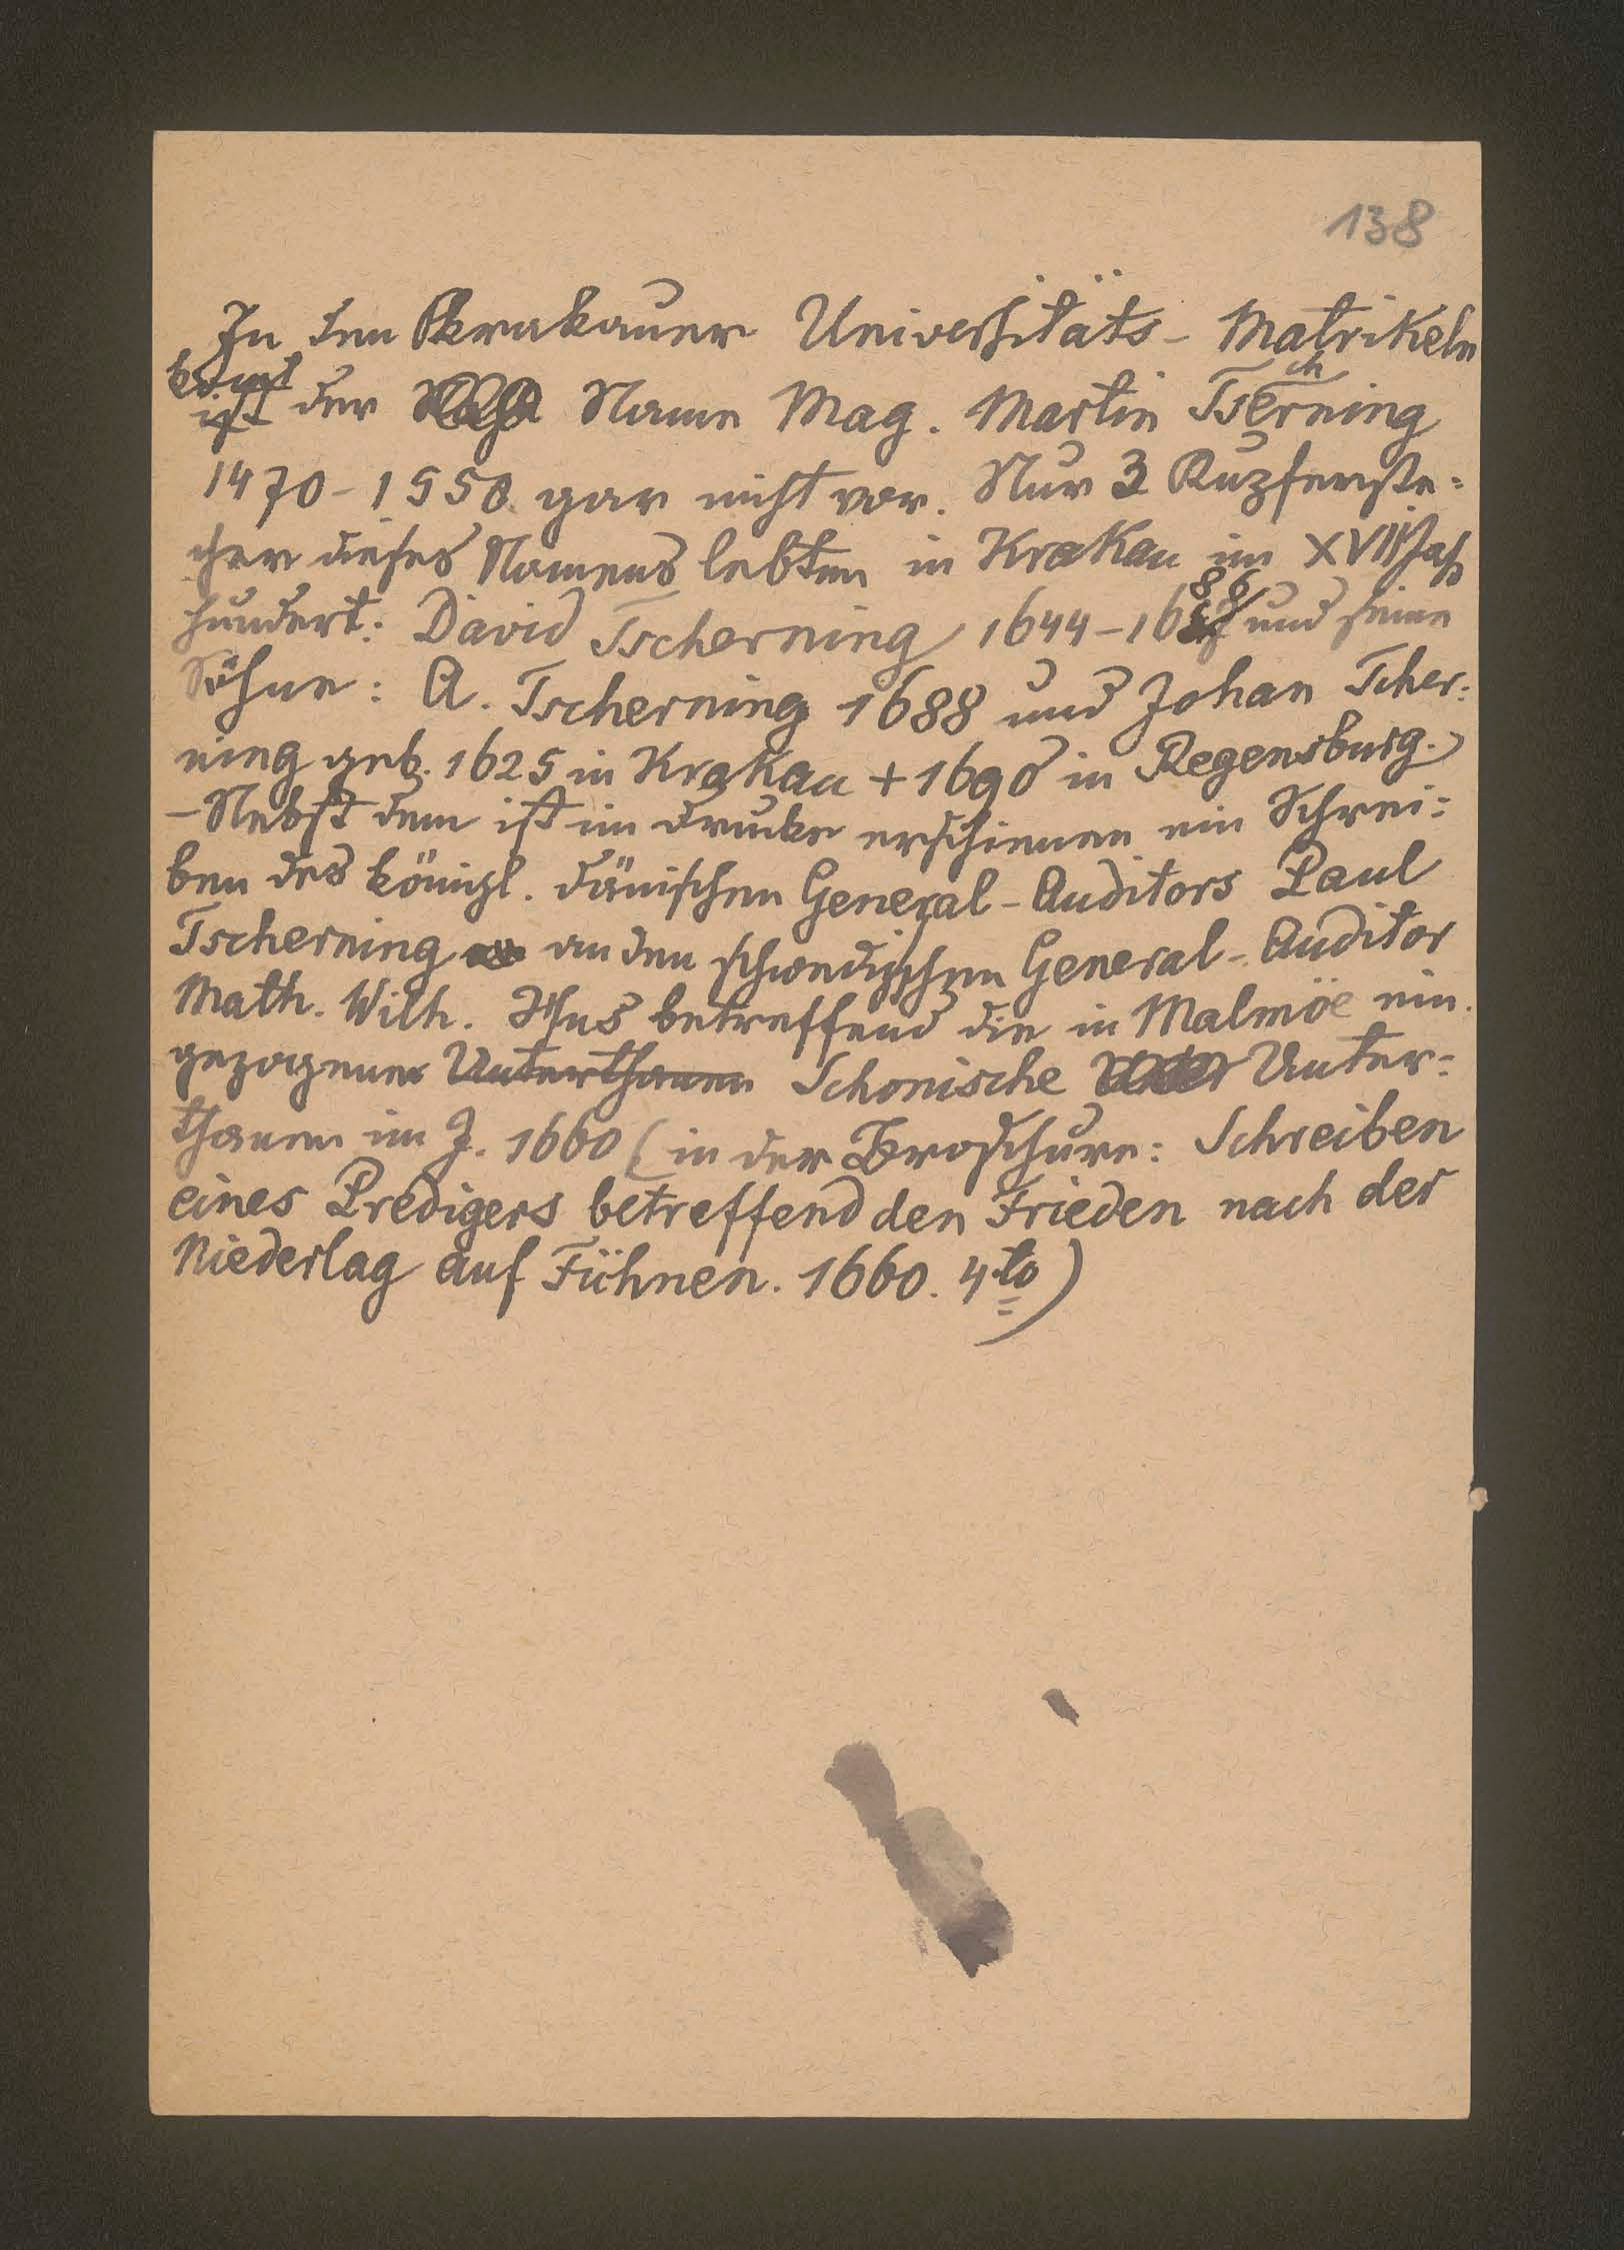 138
In den Krakauer Universitäts- Matrikeln
komt der Name Mag. Martin Tscherning
1470-1550 gar nicht vor. Nur 3 Kupferste=
cher dieses Namens lebten in Krakau im XVII Jahr
hundert: David Tscherning 1644-1686 und seine
Söhne: A. Tscherning 1688 und Johan Tscher:
ning geb. 1625 in Krakau + 1690 in Regensburg.
- Nebst dem ist im Drucke erschienen ein Schrei=
ben des königl. dänischen General-Auditors Paul
Tscherning an den schwedischen General-Auditor
Math. Wilh. betreffend die in Malmöe ein.
gezogenen Unterthanen Schonische Unter=
thanen im J. 1660 (in der Broschüre: Schreiben
eines Predigers betreffend den Frieden nach der
Niederlag auf Fühnen. 1660. 4to)